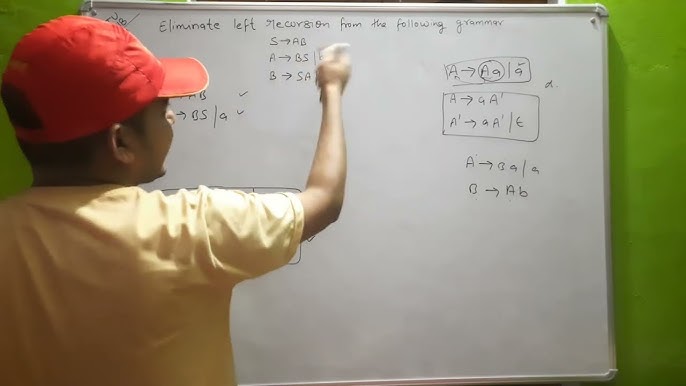 Eliminate left recursion from the following grammar
S → AB
A → BS |
B → SA
AB ✓
→ BS / a ✓
A → Aa | a
A → aA'
A' → aA' / ε
α.
A → Ba / a
B → Ab